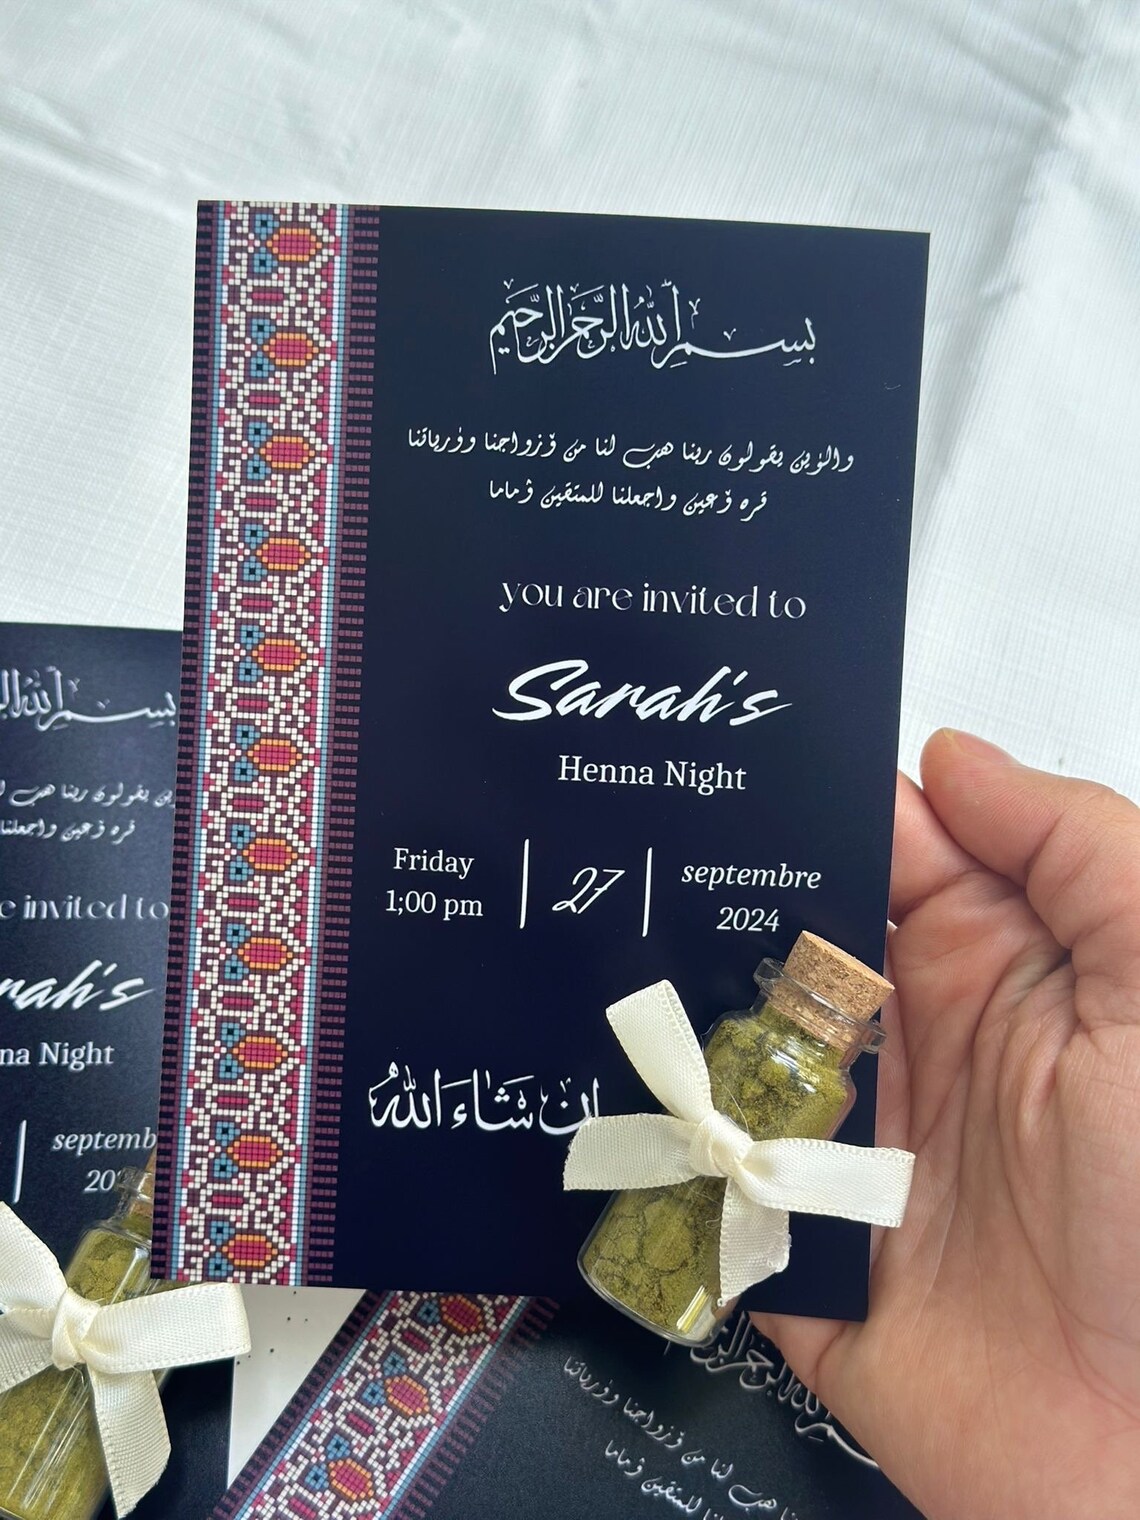 بسم الله الرحمن الرحيم
والذين يقولون ربنا هب لنا من ازواجنا وذرياتنا
قره اعين واجعلنا للمتقين اماما
you are invited to
Sarah's
Henna Night
Friday
1;00 pm
27
septembre
2024
إن شاء الله
بسم الله
يقولون ربنا هب
قره اعين واجعلنا
invited to
rah's
na Night
septemb
20
لنا من ازواجنا وذرياتنا
للمتقين اماما